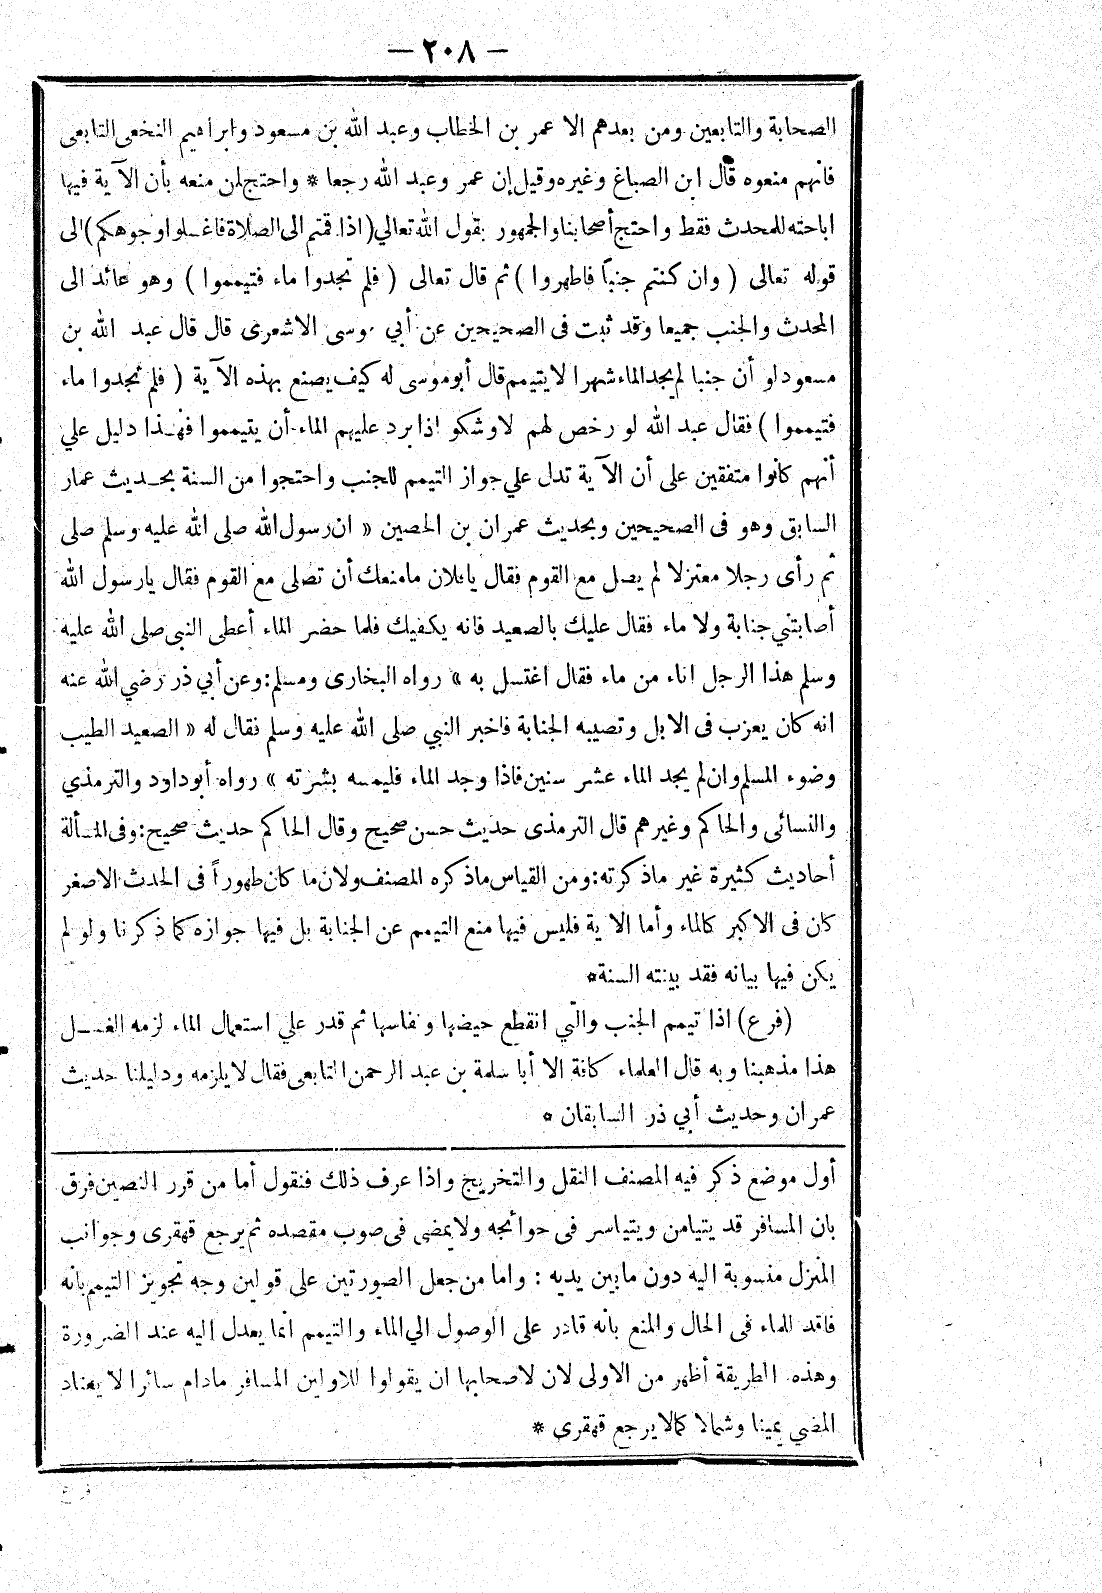 — ٢٠٨ —
الصحابة والتابعين ومن بعدهم الا عمر بن الخطاب وعبد الله بن مسعود وابراهيم النخعى التابعى
فانهم منعوه قال ابن الصباغ وغيره وقيل إن عمر وعبد الله رجعا * واحتج لمن منعه بأن الآية فيها
اباحته للمحدث فقط واحتج أصحابنا والجمهور بقول الله تعالي (اذا قمتم الى الصلاة فاغسلوا وجوهكم) الى
قوله تعالى ( وان كنتم جنباً فاطهروا ) ثم قال تعالى ( فلم تجدوا ماء فتيمموا ) وهو عائد الى
المحدث والجنب جميعا وقد ثبت فى الصحيحين عن أبي موسى الاشعرى قال قال عبد الله بن
مسعود لو أن جنبا لم يجد الماء شهرا لا يتيمم قال أبو موسى له كيف يصنع بهذه الآية ( فلم تجدوا ماء
فتيمموا ) فقال عبد الله لو رخص لهم لاوشكو اذا برد عليهم الماء أن يتيمموا فهذا دليل علي
أنهم كانوا متفقين على أن الآية تدل علي جواز التيمم للجنب واحتجوا من السنة بحديث عمار
السابق وهو فى الصحيحين وبحديث عمران بن الحصين « ان رسول الله صلى الله عليه وسلم صلى
ثم رأى رجلا معتزلا لم يصل مع القوم فقال يافلان مامنعك أن تصلى مع القوم فقال يارسول الله
أصابتني جنابة ولا ماء فقال عليك بالصعيد فانه يكفيك فلما حضر الماء أعطى النبى صلى الله عليه
وسلم هذا الرجل اناء من ماء فقال اغتسل به » رواه البخارى ومسلم : وعن أبي ذر رضي الله عنه
انه كان يعزب فى الابل وتصيبه الجنابة فاخبر النبي صلى الله عليه وسلم فقال له « الصعيد الطيب
وضوء المسلم وان لم يجد الماء عشر سنين فاذا وجد الماء فليمسه بشرته » رواه أبو داود والترمذي
والنسائى والحاكم وغيرهم قال الترمذى حديث حسن صحيح وقال الحاكم حديث صحيح : وفى المسألة
أحاديث كثيرة غير ماذكرته : ومن القياس ماذكره المصنف ولان ما كان طهوراً فى الحدث الاصغر
كان فى الاكبر كالماء وأما الاية فليس فيها منع التيمم عن الجنابة بل فيها جوازه كما ذكرنا ولو لم
يكن فيها بيانه فقد بينته السنة *
(فرع) اذا تيمم الجنب والتي انقطع حيضها ونفاسها ثم قدر علي استعمال الماء لزمه الغسل
هذا مذهبنا وبه قال العلماء كافة الا أبا سلمة بن عبد الرحمن التابعى فقال لا يلزمه ودليلنا حديث
عمران وحديث أبي ذر السابقان *
أول موضع ذكر فيه المصنف النقل والتخريج واذا عرف ذلك فنقول أما من قرر النصين فرق
بان المسافر قد يتيامن ويتياسر فى حوائجه ولا يمضى فى صوب مقصده ثم يرجع قهقرى وجوانب
المنزل منسوبة اليه دون مابين يديه : واما من جعل الصورتين على قولين وجه تجويز التيمم بانه
فاقد للماء فى الحال والمنع بانه قادر على الوصول الي الماء والتيمم انما يعدل اليه عند الضرورة
وهذه الطريقة أظهر من الاولى لان لاصحابها ان يقولوا للاولين المسافر مادام سائرا لا يعتاد
المضي يمينا وشمالا كمالا يرجع قهقرى *
فرع